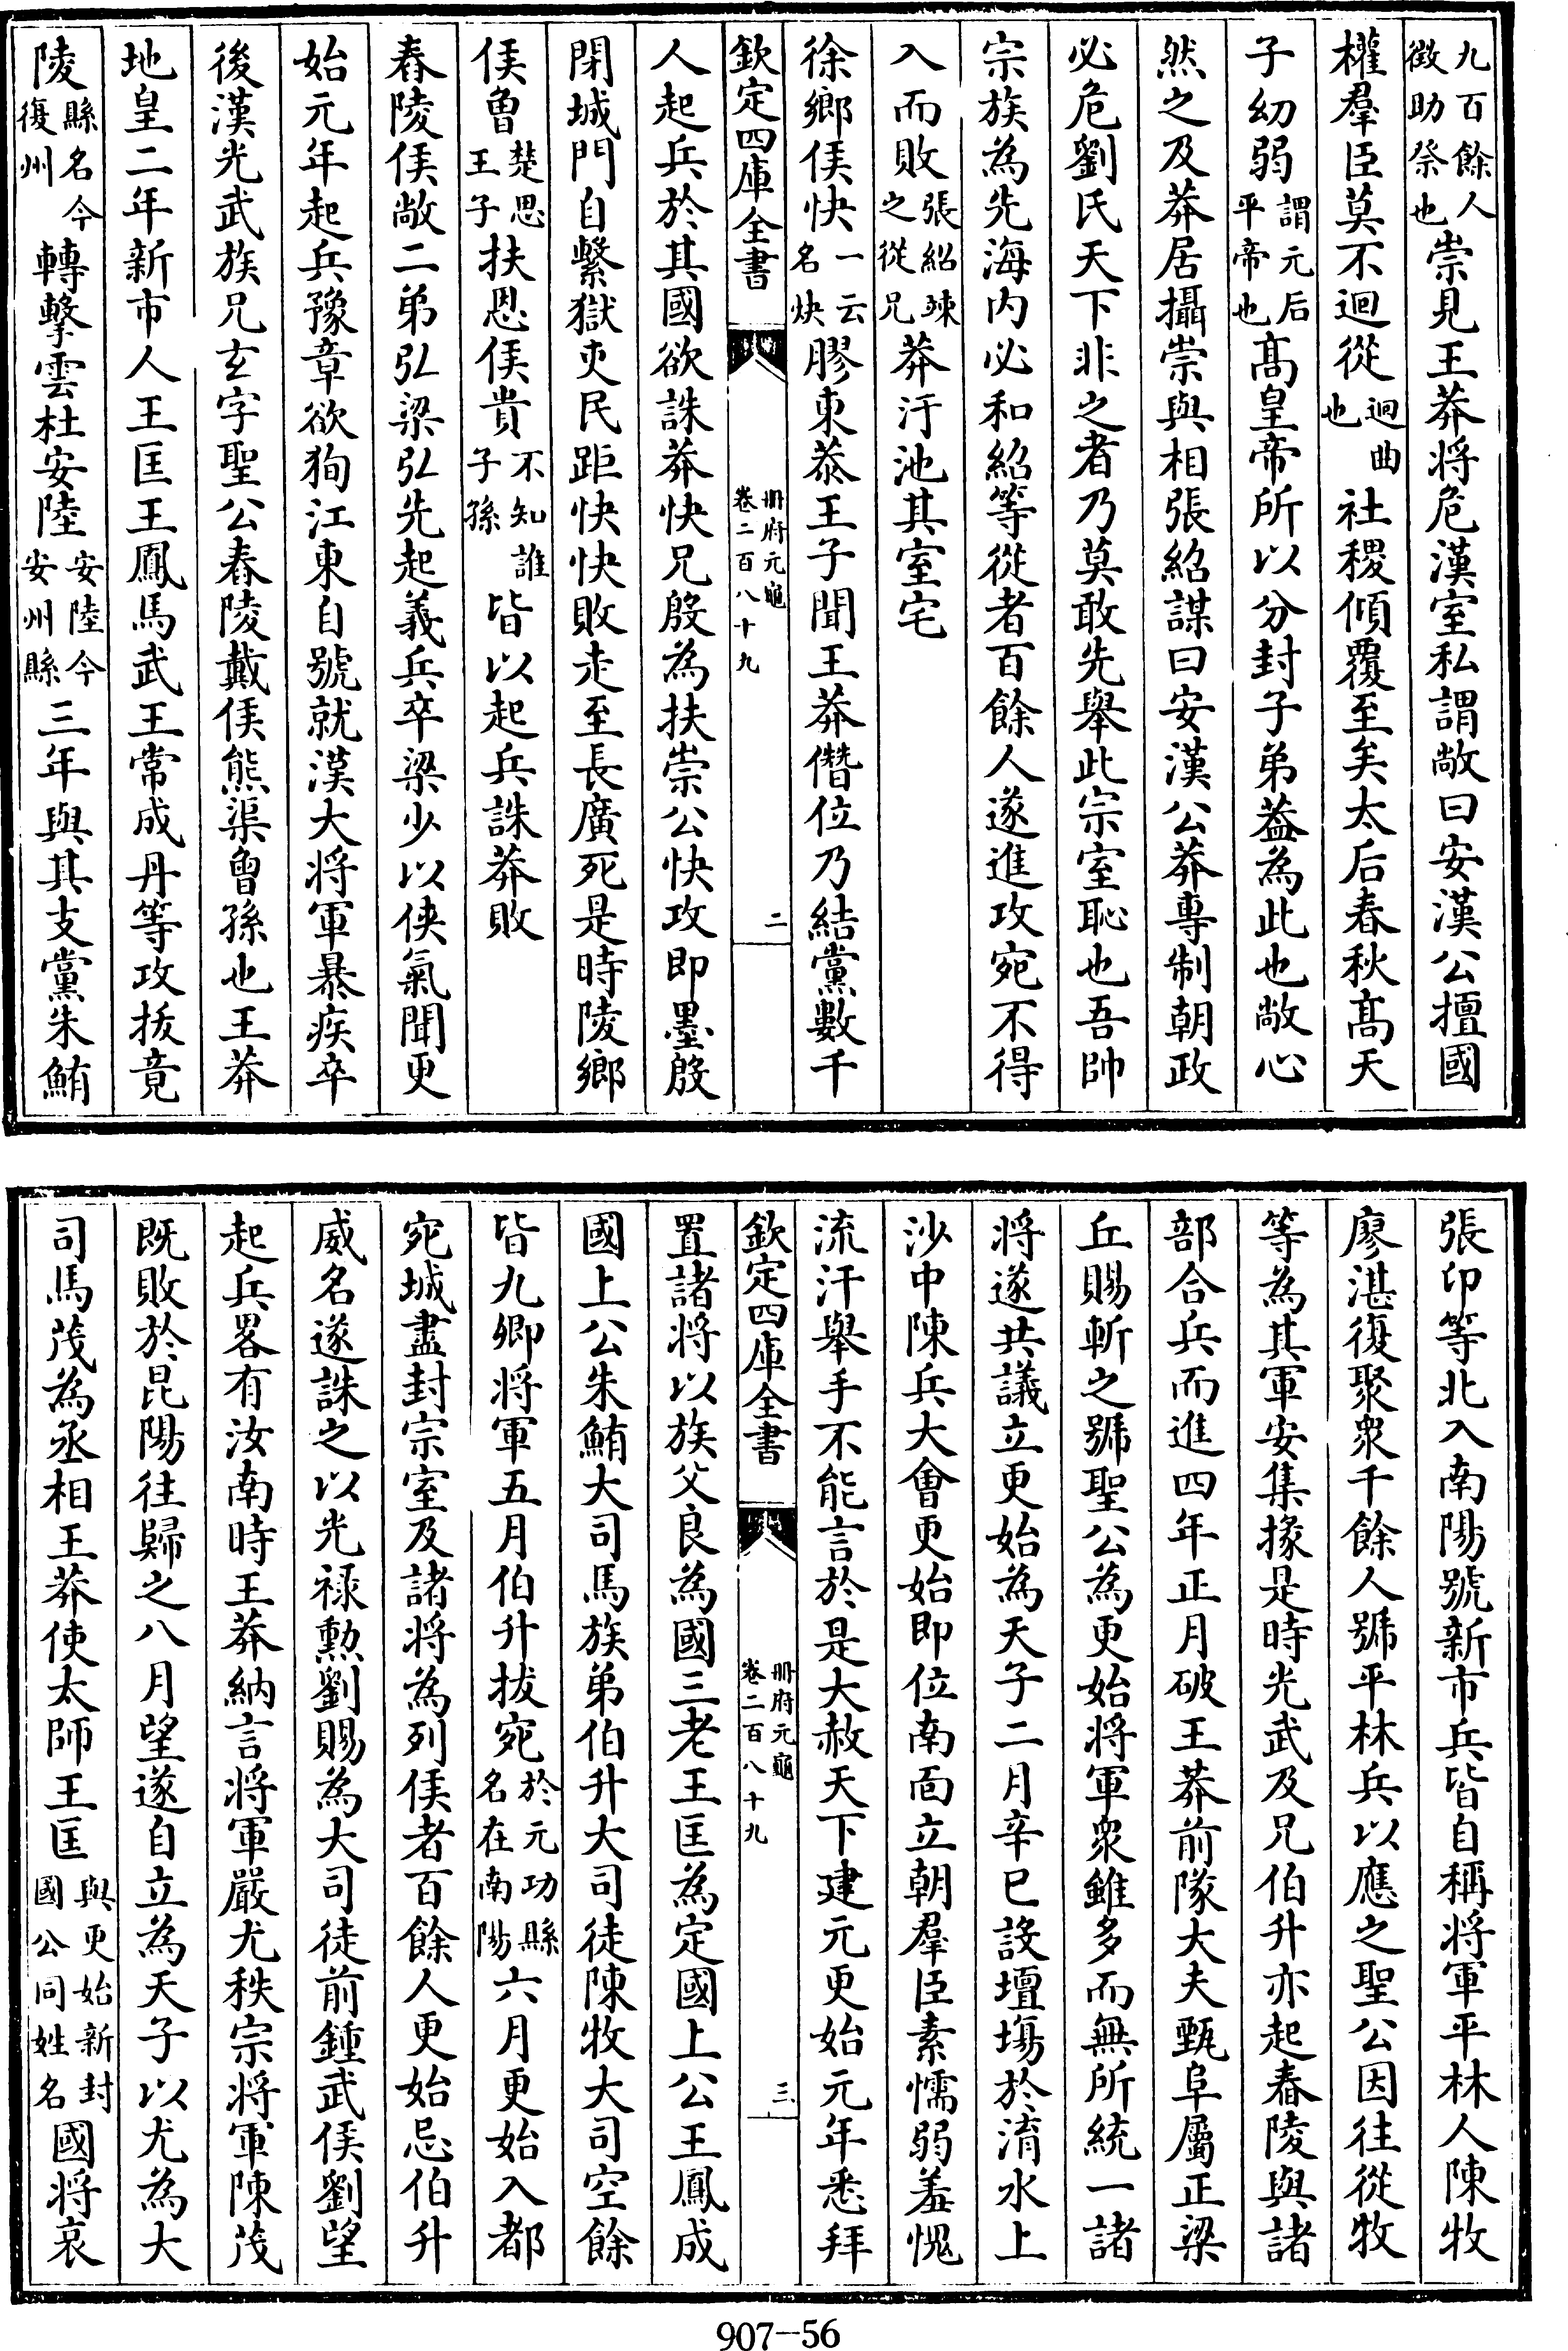 九百餘人徴助祭也崇見王莽将危漢室私謂敞曰安漢公擅國
權羣臣莫不迴從迴曲也社稷傾覆至矣太后春秋髙天
子幼弱謂元后平帝也髙皇帝所以分封子弟葢為此也敞心
然之及莽居攝崇與相張紹謀曰安漢公莽専制朝政
必危劉氏天下非之者乃莫敢先舉此宗室恥也吾帥
宗族為先海内必和紹等從者百餘人遂進攻宛不得
入而敗張紹竦之從兄莽汙池其室宅
徐鄉侯快一云名炔膠東恭王子聞王莽僭位乃結黨數千
欽定四庫全書
冊府元龜
卷二百八十九
二
人起兵於其國欲誅莽快兄殷為扶崇公快攻即墨殷
閉城門自繫獄吏民距快快敗走至長廣死是時陵鄉
侯曾楚思王子扶恩侯貴不知誰子孫皆以起兵誅莽敗
舂陵侯敞二弟弘梁弘先起義兵卒梁少以俠氣聞更
始元年起兵豫章欲狥江東自號就漢大将軍暴疾卒
後漢光武族兄玄字聖公舂陵戴侯熊渠曾孫也王莽
地皇二年新市人王匡王鳳馬武王常成丹等攻拔竟
陵縣名今復州轉擊雲杜安陸安陸今安州縣三年與其支黨朱鮪
張卬等北入南陽號新市兵皆自稱将軍平林人陳牧
廖湛復聚衆千餘人號平林兵以應之聖公因往從牧
等為其軍安集掾是時光武及兄伯升亦起舂陵與諸
部合兵而進四年正月破王莽前隊大夫甄阜屬正梁
丘賜斬之號聖公為更始将軍衆雖多而無所統一諸
将遂共議立更始為天子二月辛巳設壇塲於淯水上
沙中陳兵大會更始即位南面立朝羣臣素懦弱羞愧
流汗舉手不能言於是大赦天下建元更始元年悉拜
欽定四庫全書
冊府元龜
卷二百八十九
三
置諸将以族父良為國三老王匡為定國上公王鳳成
國上公朱鮪大司馬族弟伯升大司徒陳牧大司空餘
皆九卿将軍五月伯升拔宛於元功縣名在南陽六月更始入都
宛城盡封宗室及諸将為列侯者百餘人更始忌伯升
威名遂誅之以光禄勲劉賜為大司徒前鍾武侯劉望
起兵畧有汝南時王莽納言将軍嚴尤秩宗将軍陳茂
既敗於昆陽往歸之八月望遂自立為天子以尤為大
司馬茂為丞相王莽使太師王匡與更始新封國公同姓名國将哀
907-56